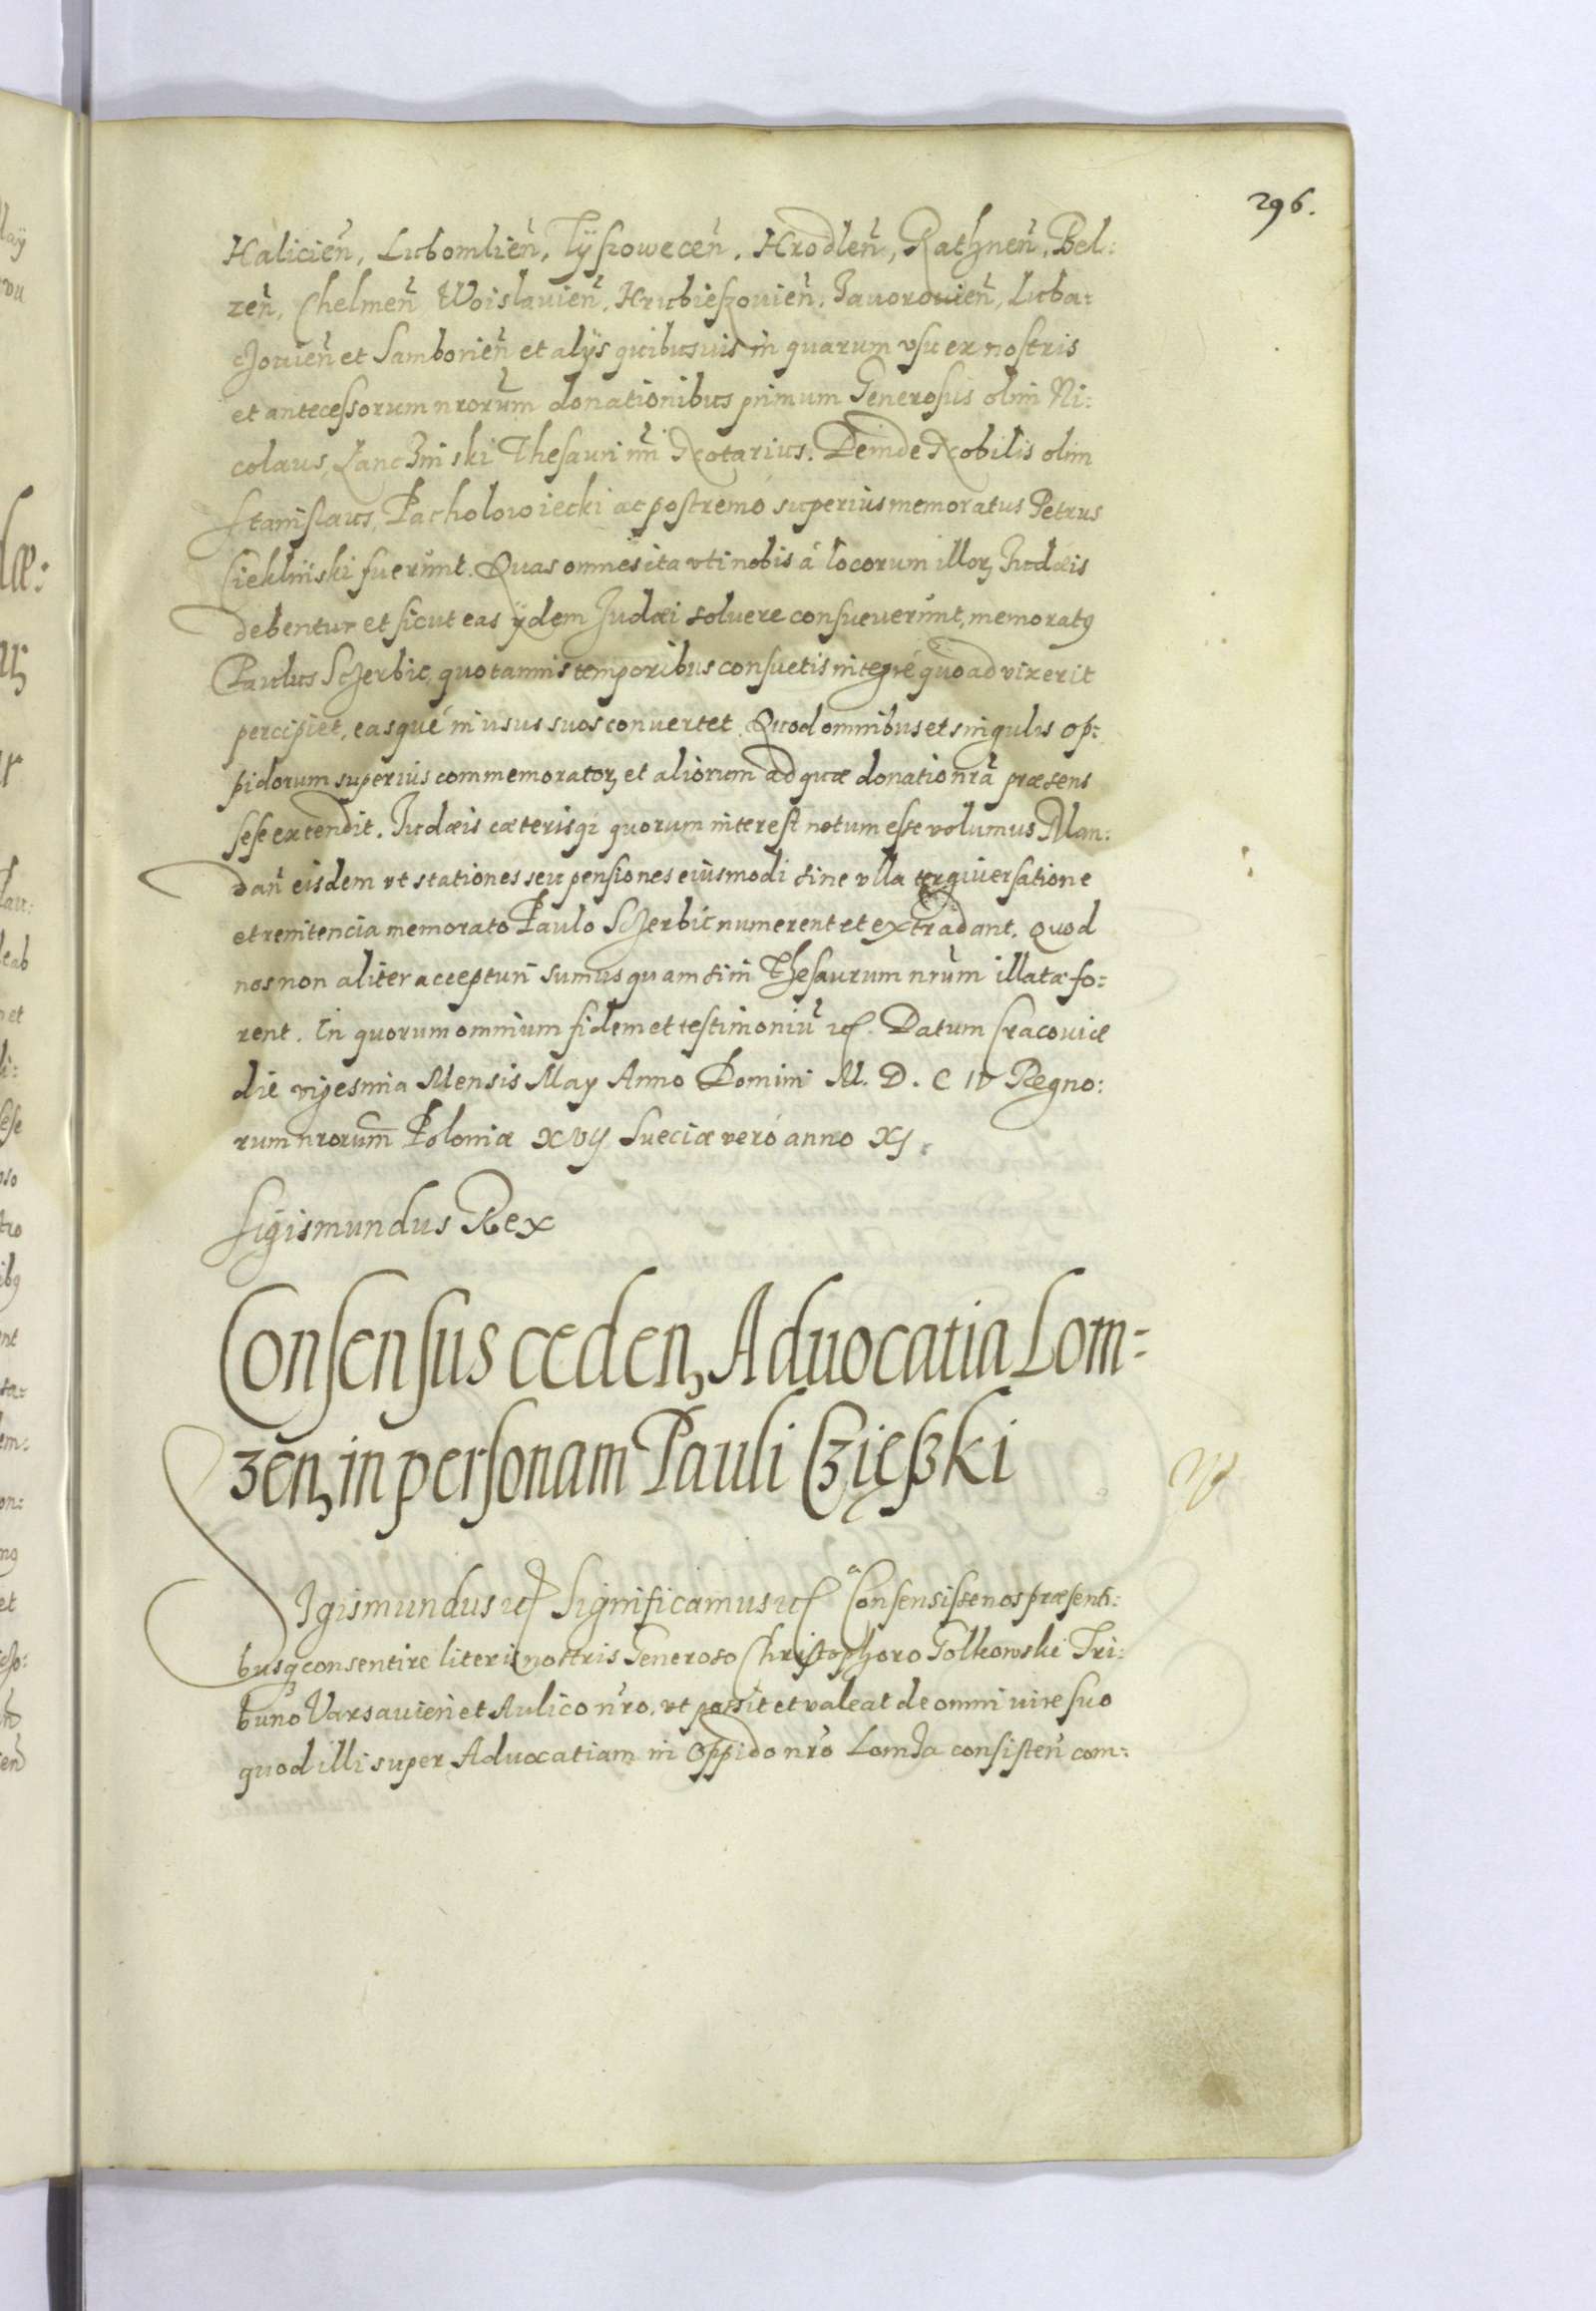 296.
Halicieñ, Lubomlieñ, Tÿszoweceñ, Hrodleñ, Rathneñ, Bel:
zeñ, Chelmeñ Woislavieñ, Hrubieszovieñ, Javorovieñ, Luba:
czovieñ et Samborieñ et alÿs quibusvis in quarum vsu ex nostris
et antecessorum nrorum donationibus primum Generosus olim Ni:
colaus Lanczinski Thesauri nri Notarius. Deinde Nobilis olim
Stanislaus Pacholowiecki ac postremó superius memoratus Petrus
Ciekliński fuerunt. Quas omnes ita vti nobis á locorum illoꝝ Judæis
debentur et sicut eas ÿdem Judæi soluere consueverunt, memoratꝰ
Paulus Sczerbic, quotannis temporibus consuetis integré quoad vixerit
percipiet, easqué in usus suos convertet. Quod omnibus et singulis op:
pidorum superius commemoratoꝝ et aliorum ad quæ donatio nrã præsens
sese extendit. Judæis cæterisqꝫ quorum interest notum esse volumus Man:
dañ eisdem vt stationes seu pensiones eiusmodi sine vlla tergiversatione
et renitencia memorato Paulo Sczerbic numerent et extradant. Quod
nos non aliter accepturi sumus quam si in Thesaurum nrũm illatæ fo:
rent. In quorum omnium fidem et testimoniũ etc. Datum Cracoviæ
die vigesima Mensis May Anno Domini M. D. C IV Regno:
rum nrorum Poloniæ XVIJ Sueciæ veró anno XJ.
Sigismundus Rex
Consensus cedenꝫ Aduocatia Lom=
zenꝫ in personam Pauli Czięszki
Sigismundus etc Significamus etc Consensisse nos præsenti:
busqꝫ consentire literis nostris Generoso Christophoro Golkowski Tri:
buno Varsavieñ et Aulico nrõ. vt possit et valeat de omni iure suo
quod illi super Advocatiam in Oppido nrõ Lomza consisteñ com: